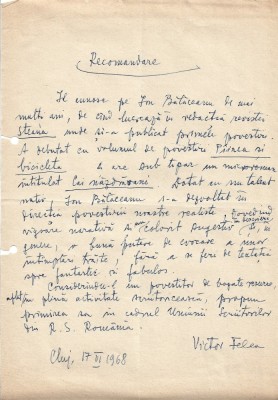 Recomandare
Îl cunosc pe Ion Bălăceanu de mai
mulți ani, de când lucrează în redacția revistei
Steaua unde și-a publicat primele povestiri.
A debutat cu volumul de povestiri Pâinea și
bicicleta are sub tipar un microroman
intitulat Cai năzdrăvani Dotat cu un talent
nativ, Ion Bălăceanu s-a dezvoltat în
direcția povestirii noastre realiste, dovedind
vigoare narativă colorit sugestiv în
genere, o bună putere de evocare a unor
întâmplări trăite, fără a se feri de tentația
spre fantastic și fabulos.
Considerîndu-l un povestitor de bogate resurse,
aflat în plină activitate scriitoricească, propun
primirea sa în cadrul Uniunii Scriitorilor
din R. S. România.
Victor Felea
Cluj, 17 VI 1968